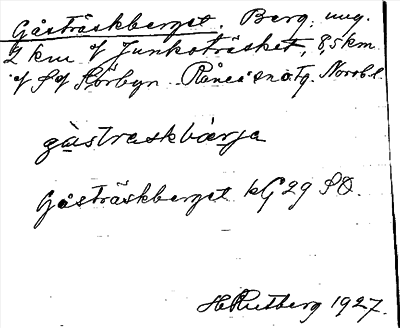 Gåsträskberget. Berg, ung.
2 km V Junkoträsket, 8,5 km
V SV Sörbyn Råneå sn o tg. Norrb l.
gåstraskbærja
Gåsträskberget kG 29 SO.
H Rutberg 1927.